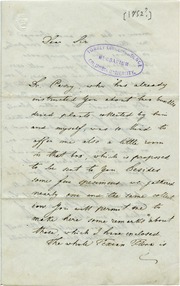 (1852?)
Dear Sir
Dr. who has already
instructed you about two hundred
dried plants collected by him
and myself, was so kind to
offer me also a little room
in that box, which is proposed
to be sent to you. Besides
some few specimens, we gathered
nearly one and the same collec
tion. You will permit me to
make here some remarks about
those, which I have enclosed.
The whole Texan Flora is